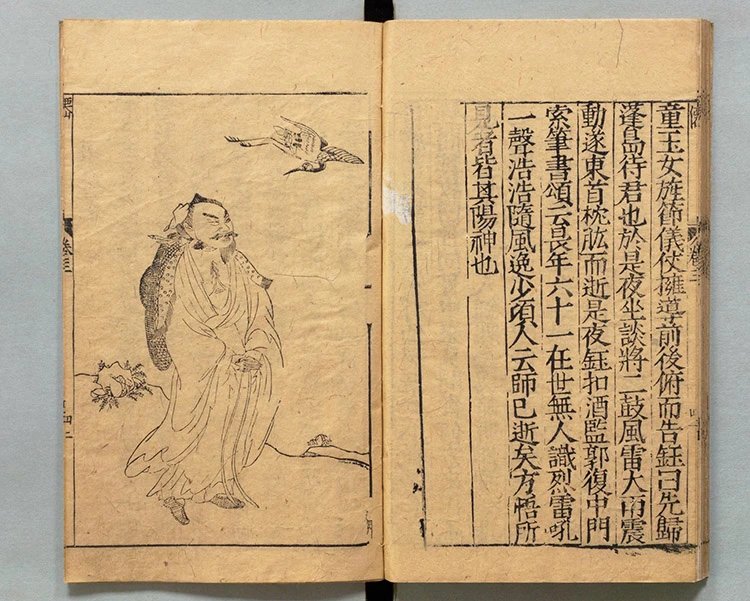 童玉女旌節儀仗擁導前後俯而告鈺曰先歸
蓬島待君也於是夜坐談將二鼓風雷大雨震
動遂東首枕肱而逝是夜鈺扣酒監郭復中門
索筆書頌云長年六十一在世無人識烈雷吼
一聲浩浩隨風逸少頃人云師已逝矣方悟所
見者皆其陽神也
卷三